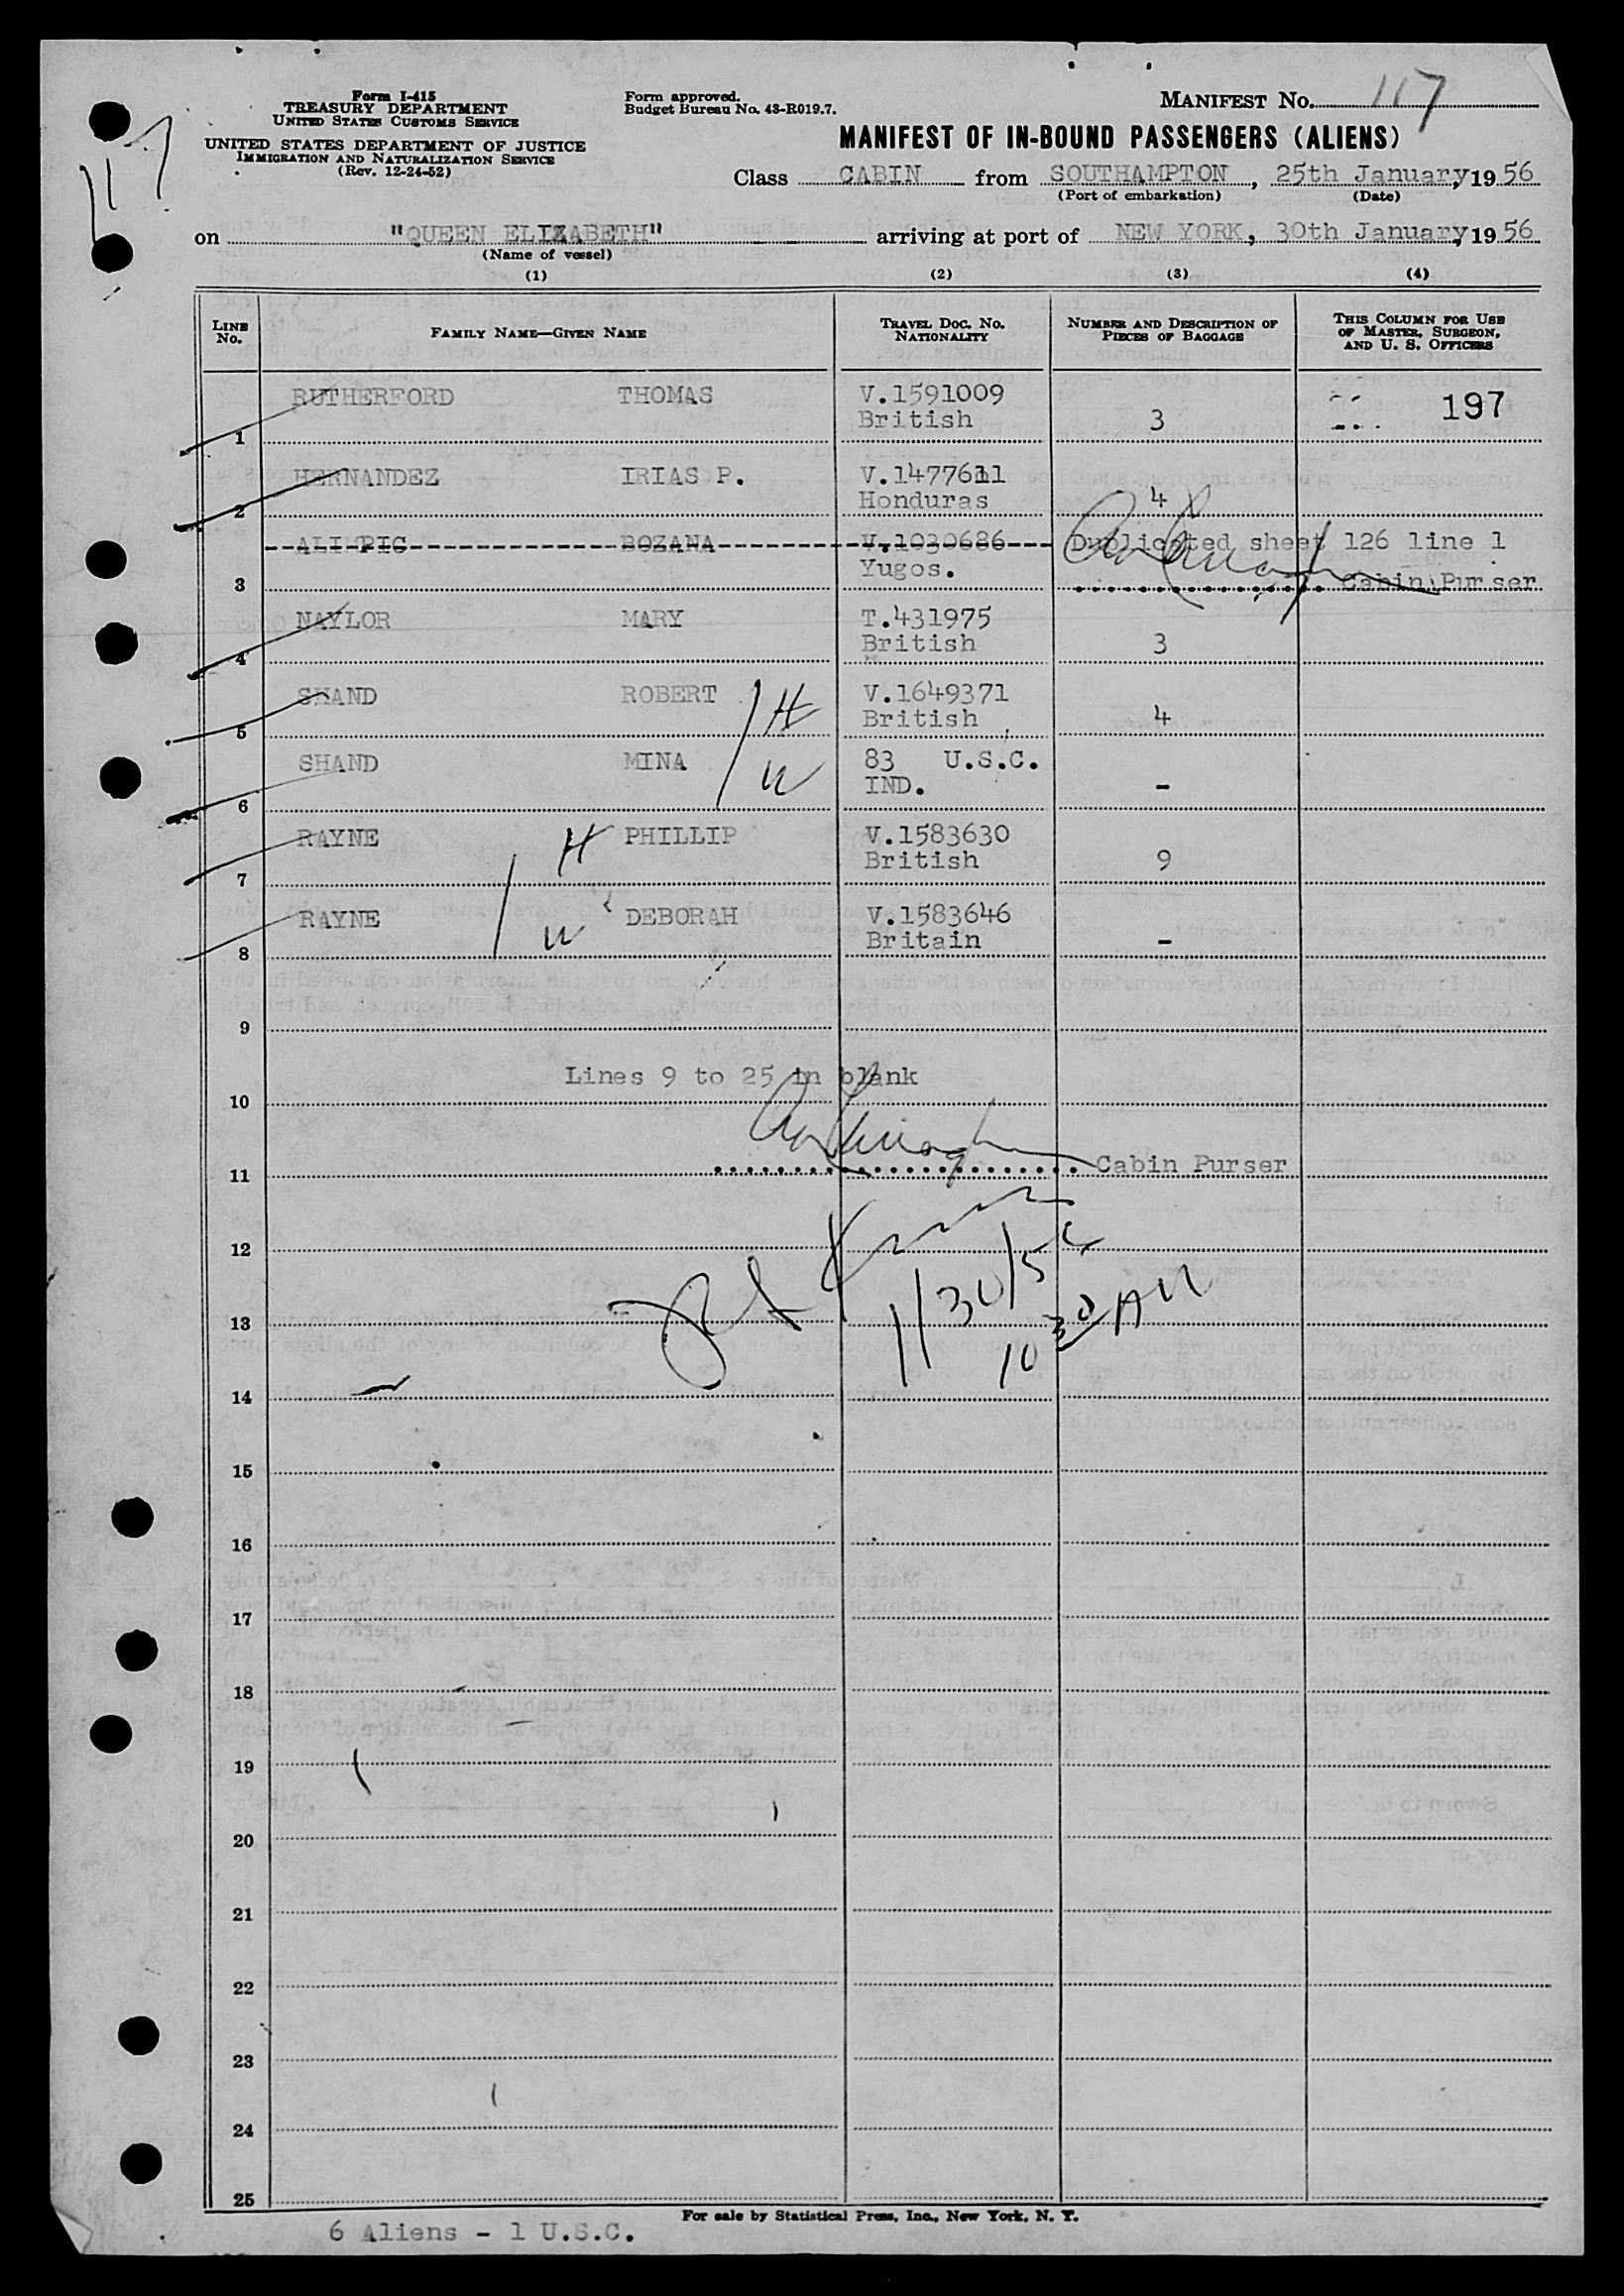 Form I-415
TREASURY DEPARTMENT
UNITED STATES CUSTOMS SERVICE
UNITED STATES DEPARTMENT OF JUSTICE
IMMIGRATION AND NATURALIZATION SERVICE
(Rev. 12-24-52)
Form approved.
Budget Bureau No. 43-R019.7.
MANIFEST NO. 117
117
MANIFEST OF IN-BOUND PASSENGERS (ALIENS)
Class CABIN from SOUTHAMPTON, 25th January, 1956
(Port of embarkation) (Date)
on "QUEEN ELIZABETH" arriving at port of NEW YORK, 30th January, 1956
(Name of vessel)
(1) (2) (3) (4)
LINE No. FAMILY NAME—GIVEN NAME TRAVEL DOC. NO. NATIONALITY NUMBER AND DESCRIPTION OF PIECES OF BAGGAGE THIS COLUMN FOR USE OF MASTER, SURGEON, AND U. S. OFFICERS
RUTHERFORD THOMAS V.1591009 197
1 British 3
HERNANDEZ IRIAS P. V.1477611
2 Honduras 4
ALI PIC BOZANA V.1030686 Duplicated sheet 126 line 1
3 Yugos. Cabin Purser
NAYLOR MARY T.431975
4 British 3
SHAND ROBERT H V.1649371
5 British 4
SHAND MINA W 83 U.S.C.
6 IND. -
RAYNE H PHILLIP V.1583630
7 British 9
RAYNE W DEBORAH V.1583646
8 Britain -
9
Lines 9 to 25 in blank
10
11 Cabin Purser
12
1/30/56
13
10 30 AM
14
15
16
17
18
19
20
21
22
23
24
25
For sale by Statistical Press, Inc., New York, N. Y.
6 Aliens - 1 U.S.C.